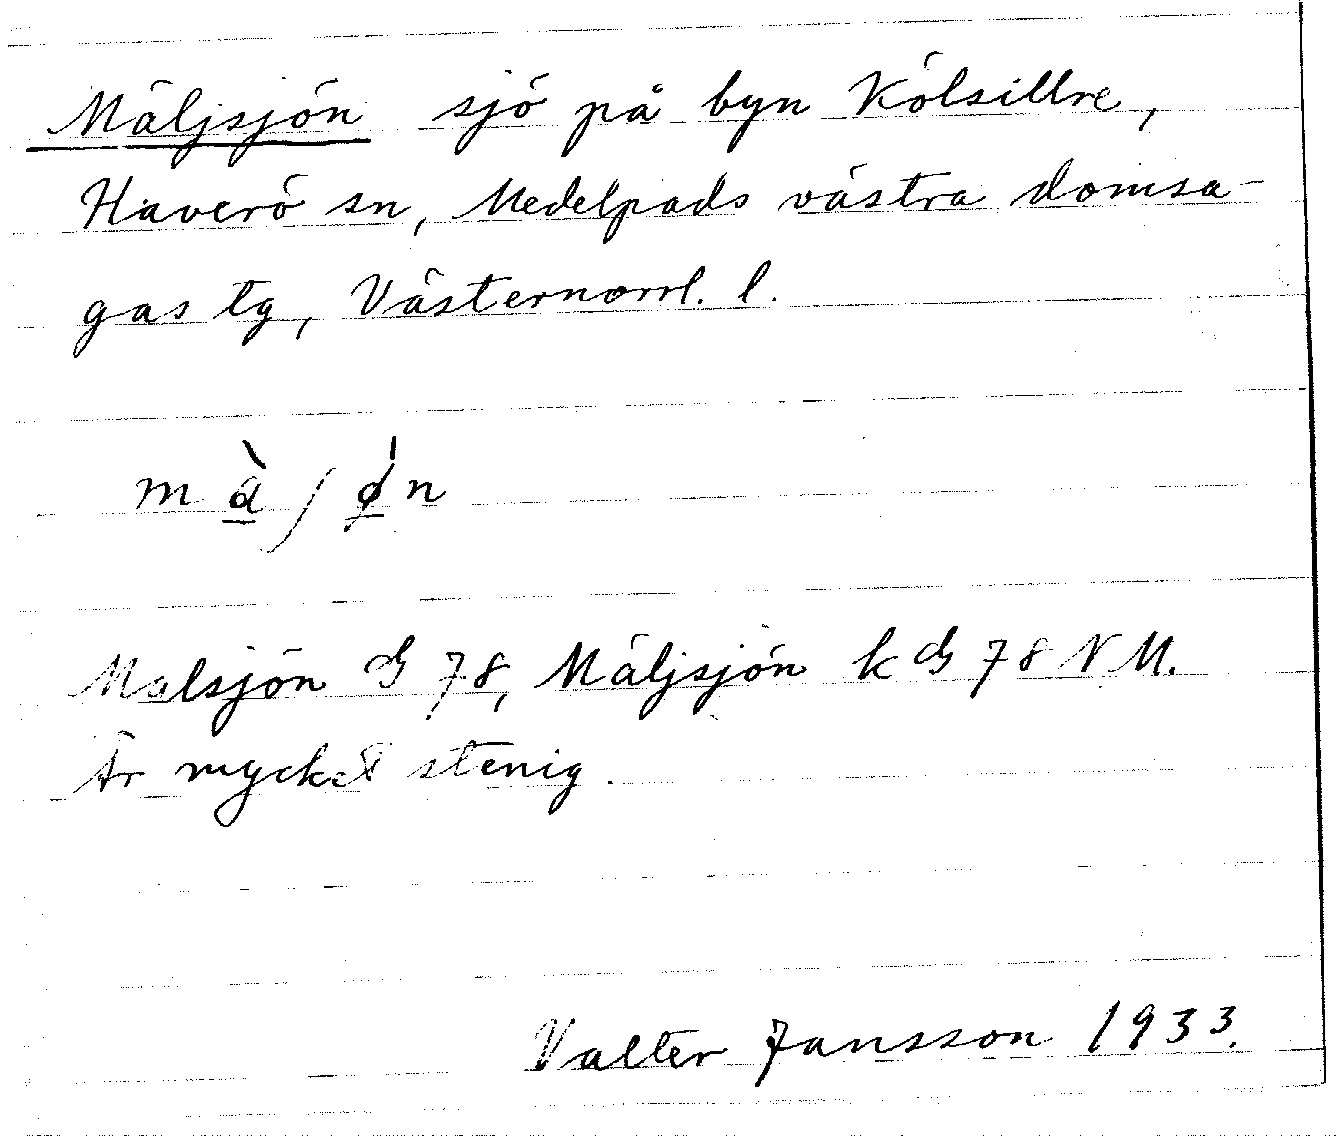 Mäljsjön sjö på byn Kölsillre,
Haverö sn, Medelpads västra domsa-
gas tg, Västernorrl. l.
mà̱ʃǿ̱n
Malsjön GS 78, Mäljsjön k GS 78 N M.
Är mycket stenig.
Valter Jansson 1933.